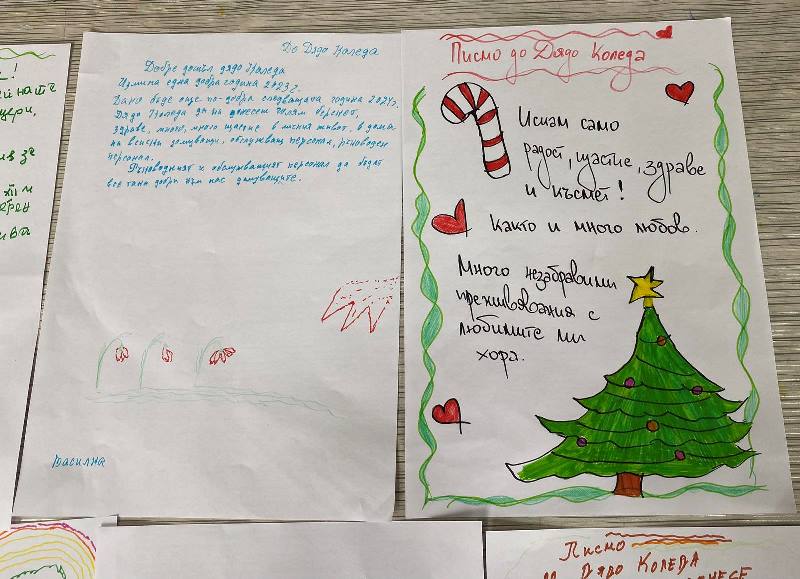 До Дядо Коледа
Добре дошъл дядо Коледа
Измина една добра година 2023 г.
Дано бъде още по-добра следващата година 2024г.
Дядо Коледа да ни донесеш голям берекет,
здраве, много, много щастие в личния живот, в дома
на всички домуващи, обслужващ персонал, ръководен
персонал.
Ръководният и обслужващият персонал да бъдат
все така добри към нас домуващите.
Василка
Писмо до Дядо Коледа
Искам само
радост, щастие, здраве
и късмет!
Както и много любов.
Много незабравими
преживявания с
любимите ми
хора.
Писмо
Дядо Коледа